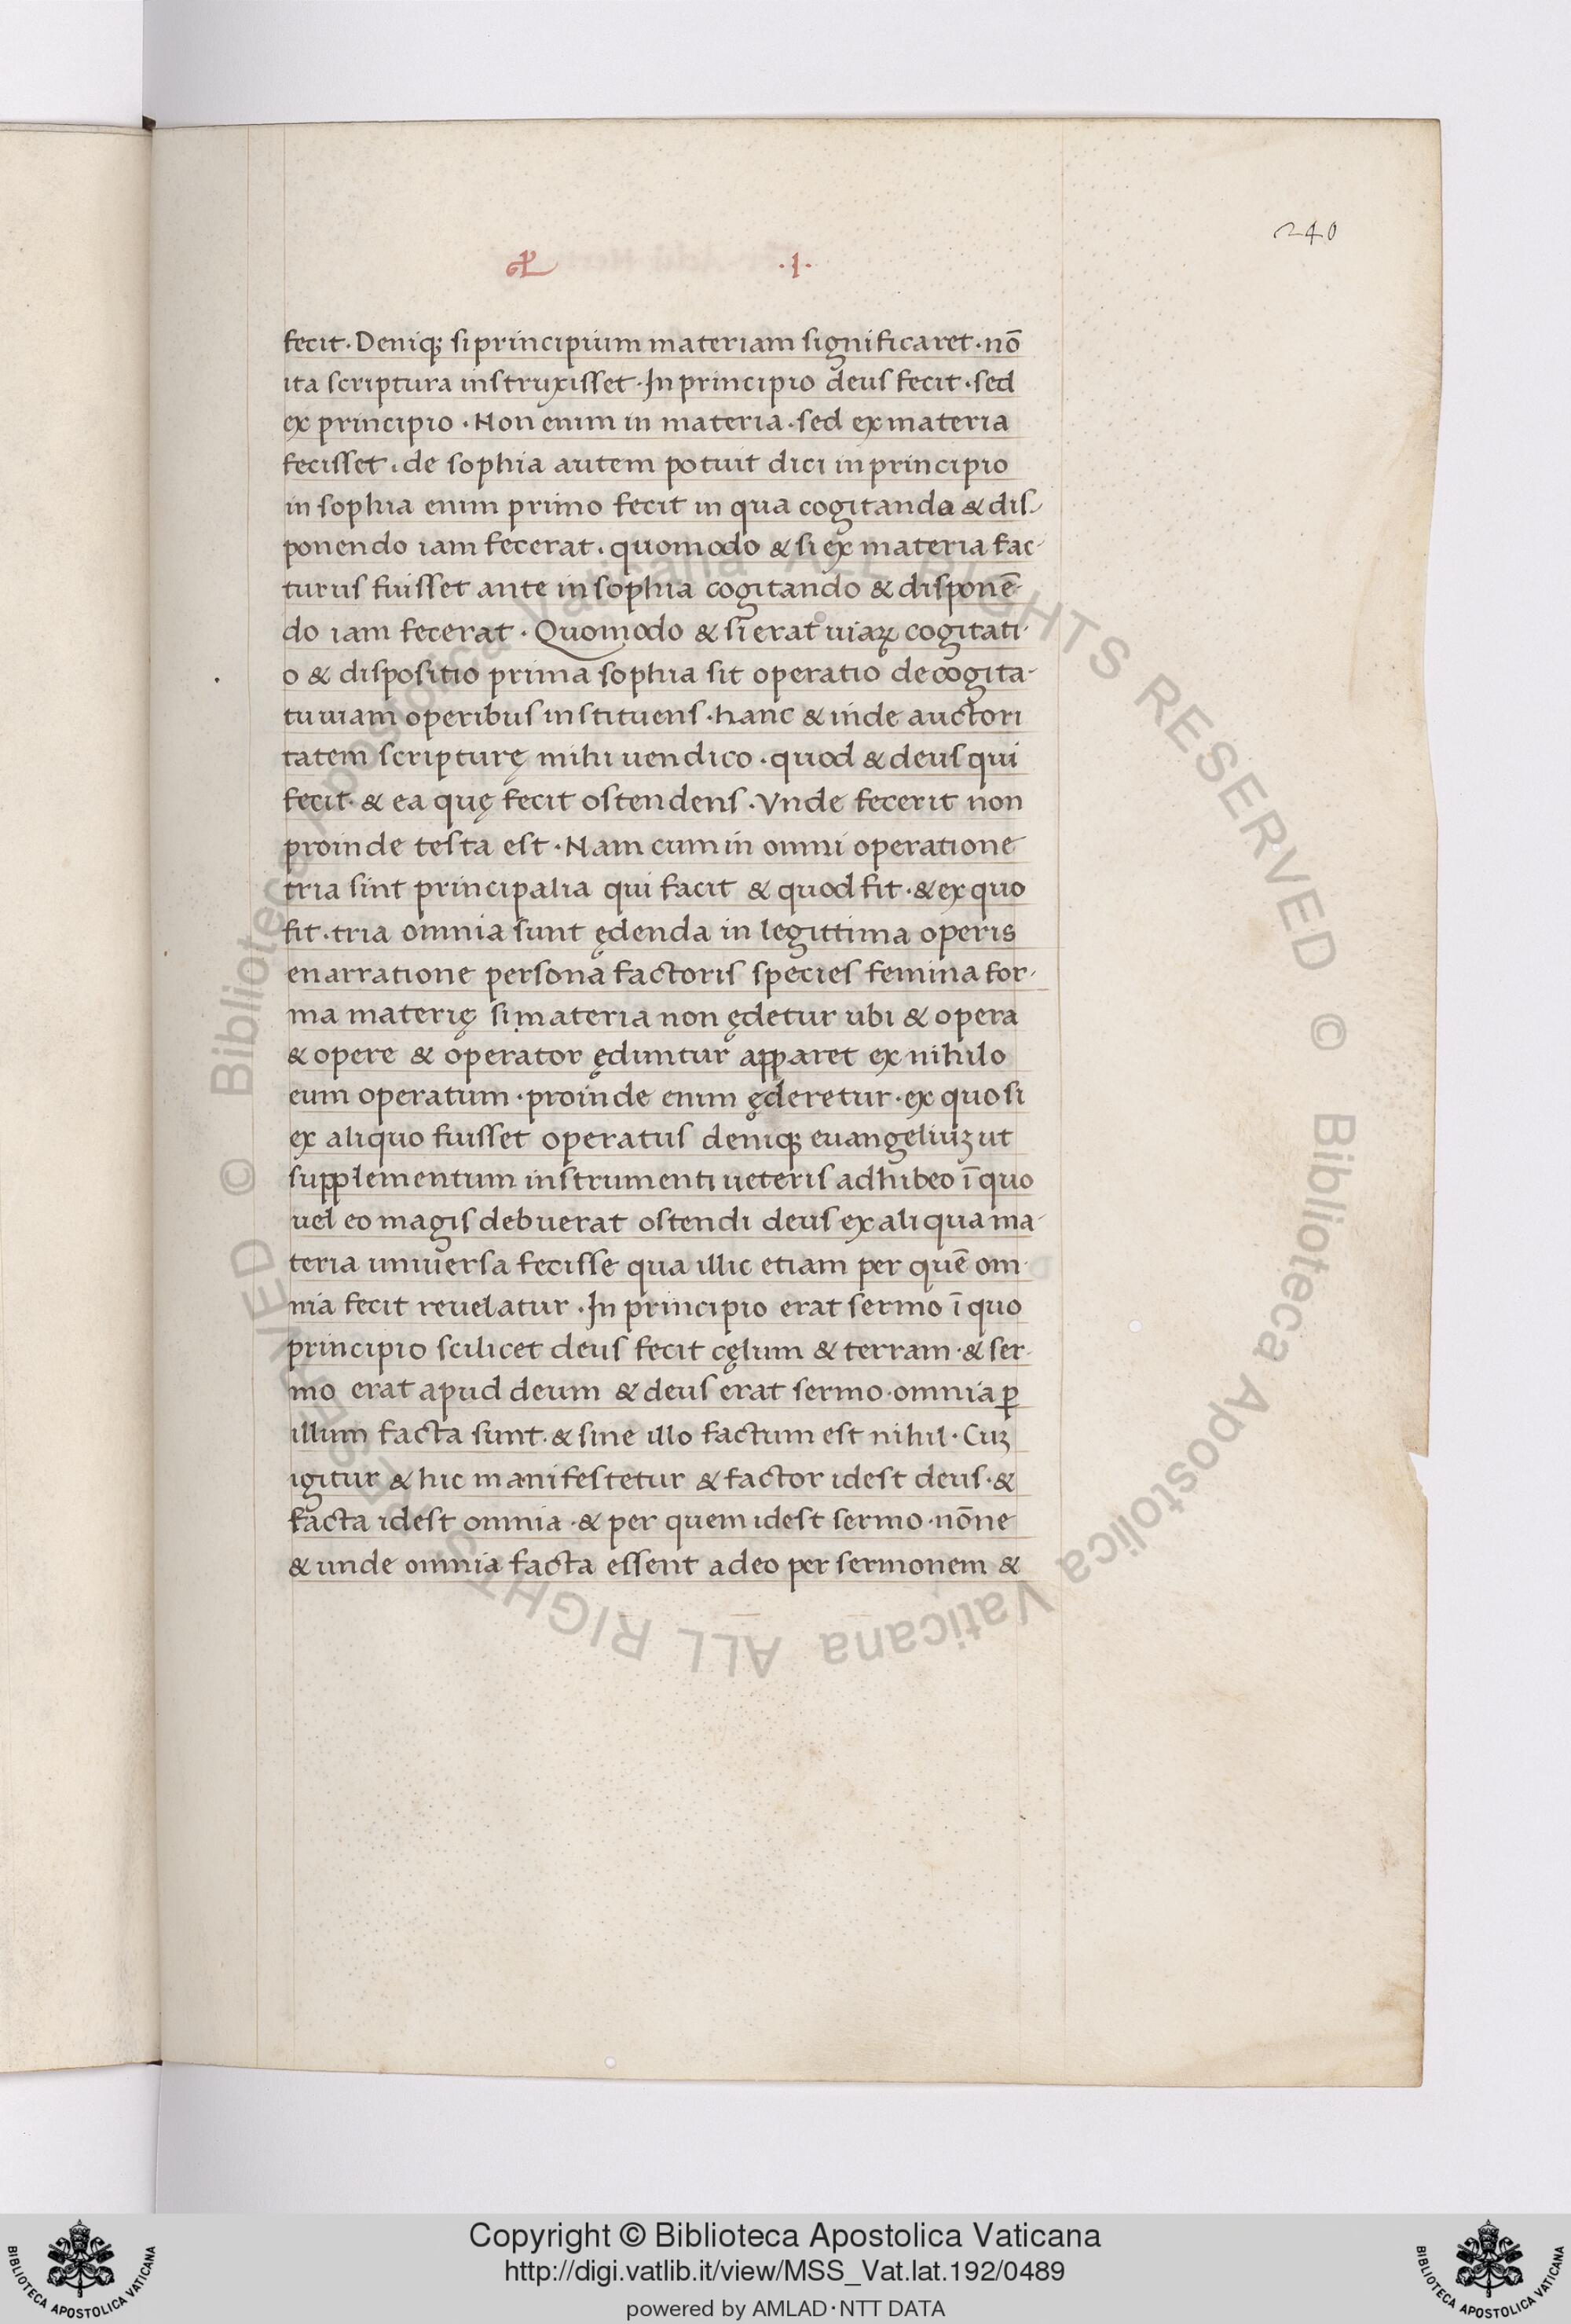 240
·I·
fecit · Deniqꝫ si principium materiam significaret · nō
ita scriptura instruxisset · In principio deus fecit · sed
ex principio · Non enim in materia · sed ex materia
fecisset · de sophia autem potuit dici in principio
in sophia enim primo fecit in qua cogitanda & dis-
ponendo iam fecerat · quomodo & si ex materia fac-
turus fuisset ante in sophia cogitando & disponē-
do iam fecerat · Quomodo & si erat uiaꝝ cogitati-
o & dispositio prima sophia sit operatio de cogita-
tu uiam operibus instituens · hanc & inde auctori
tatem scripturę mihi uendico · quod & deus qui
fecit · & ea quę fecit ostendens · Vnde fecerit non
proinde testa est · Nam cum in omni operatione
tria sint principalia qui facit & quod fit · & ex quo
fit · tria omnia sunt ędenda in legittima operis
enarratione persona factoris species femina for-
ma materię si materia non ędetur ubi & opera
& opere & operator ęduntur apparet ex nihilo
eum operatum · proinde enim ęderetur · ex quo si
ex aliquo fuisset operatus deniqꝫ euangeliuꝫ ut
supplementum instrumenti ueteris adhibeo ī quo
uel eo magis debuerat ostendi deus ex aliqua ma-
teria uniuersa fecisse qua illic etiam per quē om-
nia fecit reuelatur · In principio erat sermo ī quo
principio scilicet deus fecit cęlum & terram · & ser-
mo erat apud deum & deus erat sermo · omnia ꝑ
illum facta sunt · & sine illo factum est nihil · Cuꝫ
igitur & hic manifestetur & factor idest deus · &
facta idest omnia · & per quem idest sermo · nōne
& unde omnia facta essent adeo per sermonem &
© Biblioteca Apostolica Vaticana ALL RIGHTS RESERVED © Biblioteca Apostolica Vaticana ALL RIGHTS RESERVED
Copyright © Biblioteca Apostolica Vaticana
http://digi.vatlib.it/view/MSS_Vat.lat.192/0489
powered by AMLAD·NTT DATA
BIBLIOTECA APOSTOLICA VATICANA
BIBLIOTECA APOSTOLICA VATICANA